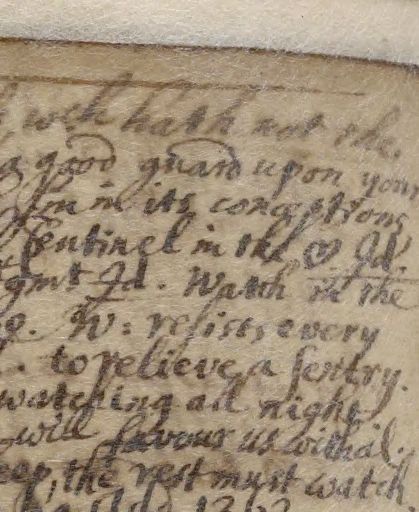 wch hath not the
a good guard upon you
in its conceptions
Sentinel in the ♡ Id.
Id. Watch in the
W: resists every
to relieve a sentry.
watching all night
will favour us withal.
the rest must watch